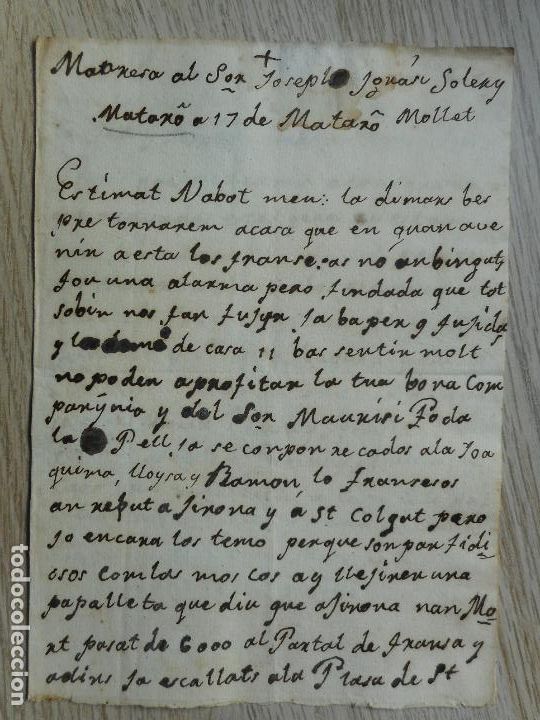 +
Manresa al Sor. Joseph Ignási Soleny
Mataró a 17 de Mataró Mollet
Estimat Nabot meu: la dimars bes
pre tornarem acasa que en quan ave
nir a esta los franse.sas no an bingut,
fou una alarma pero fundada que tot
sobin nos fan fuyr ja ba per 9 fujida
y de casa 11 bas sentir molt
no poden aprofitar la tua bona Com
panynia y del Sor Maurisi Poda
la Pell ja se conpon recados ala Joa
quima, lloysa y Ramon lo Fransesos
an reput a Jirona y á St Colgat pero
jo encara los temo perque son parfidi
osos com las moscos ay llejiren una
papalleta que diu que a Jirona nan Mo
rt pasat de 6000 al Partal de fransa y
adins ja escallats ala Plasa de St
todocoleccion